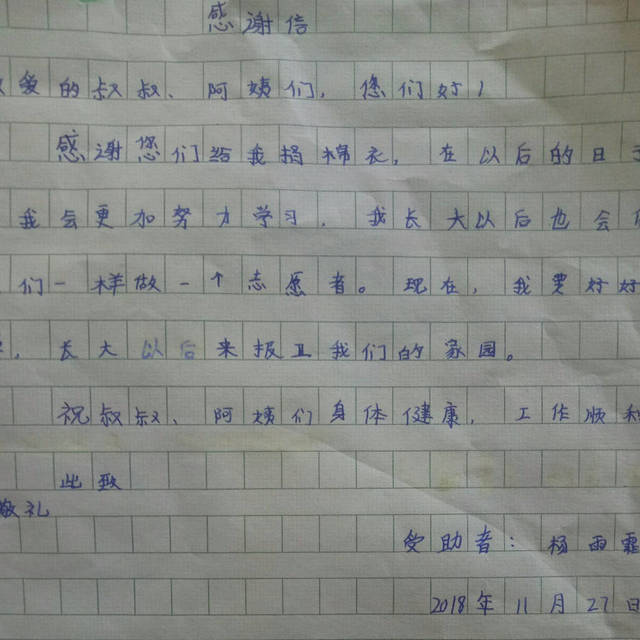 感谢信
爱的叔叔、阿姨们，您们好！
感谢您们给我捐棉衣，在以后的日
我会更加努力学习，我长大以后也会
们一样做一个志愿者。现在，我要好好
，长大以后来报卫我们的家园。
祝叔叔、阿姨们身体健康，工作顺利
此致
敬礼
受助者：杨雨霏
2018年11月27日